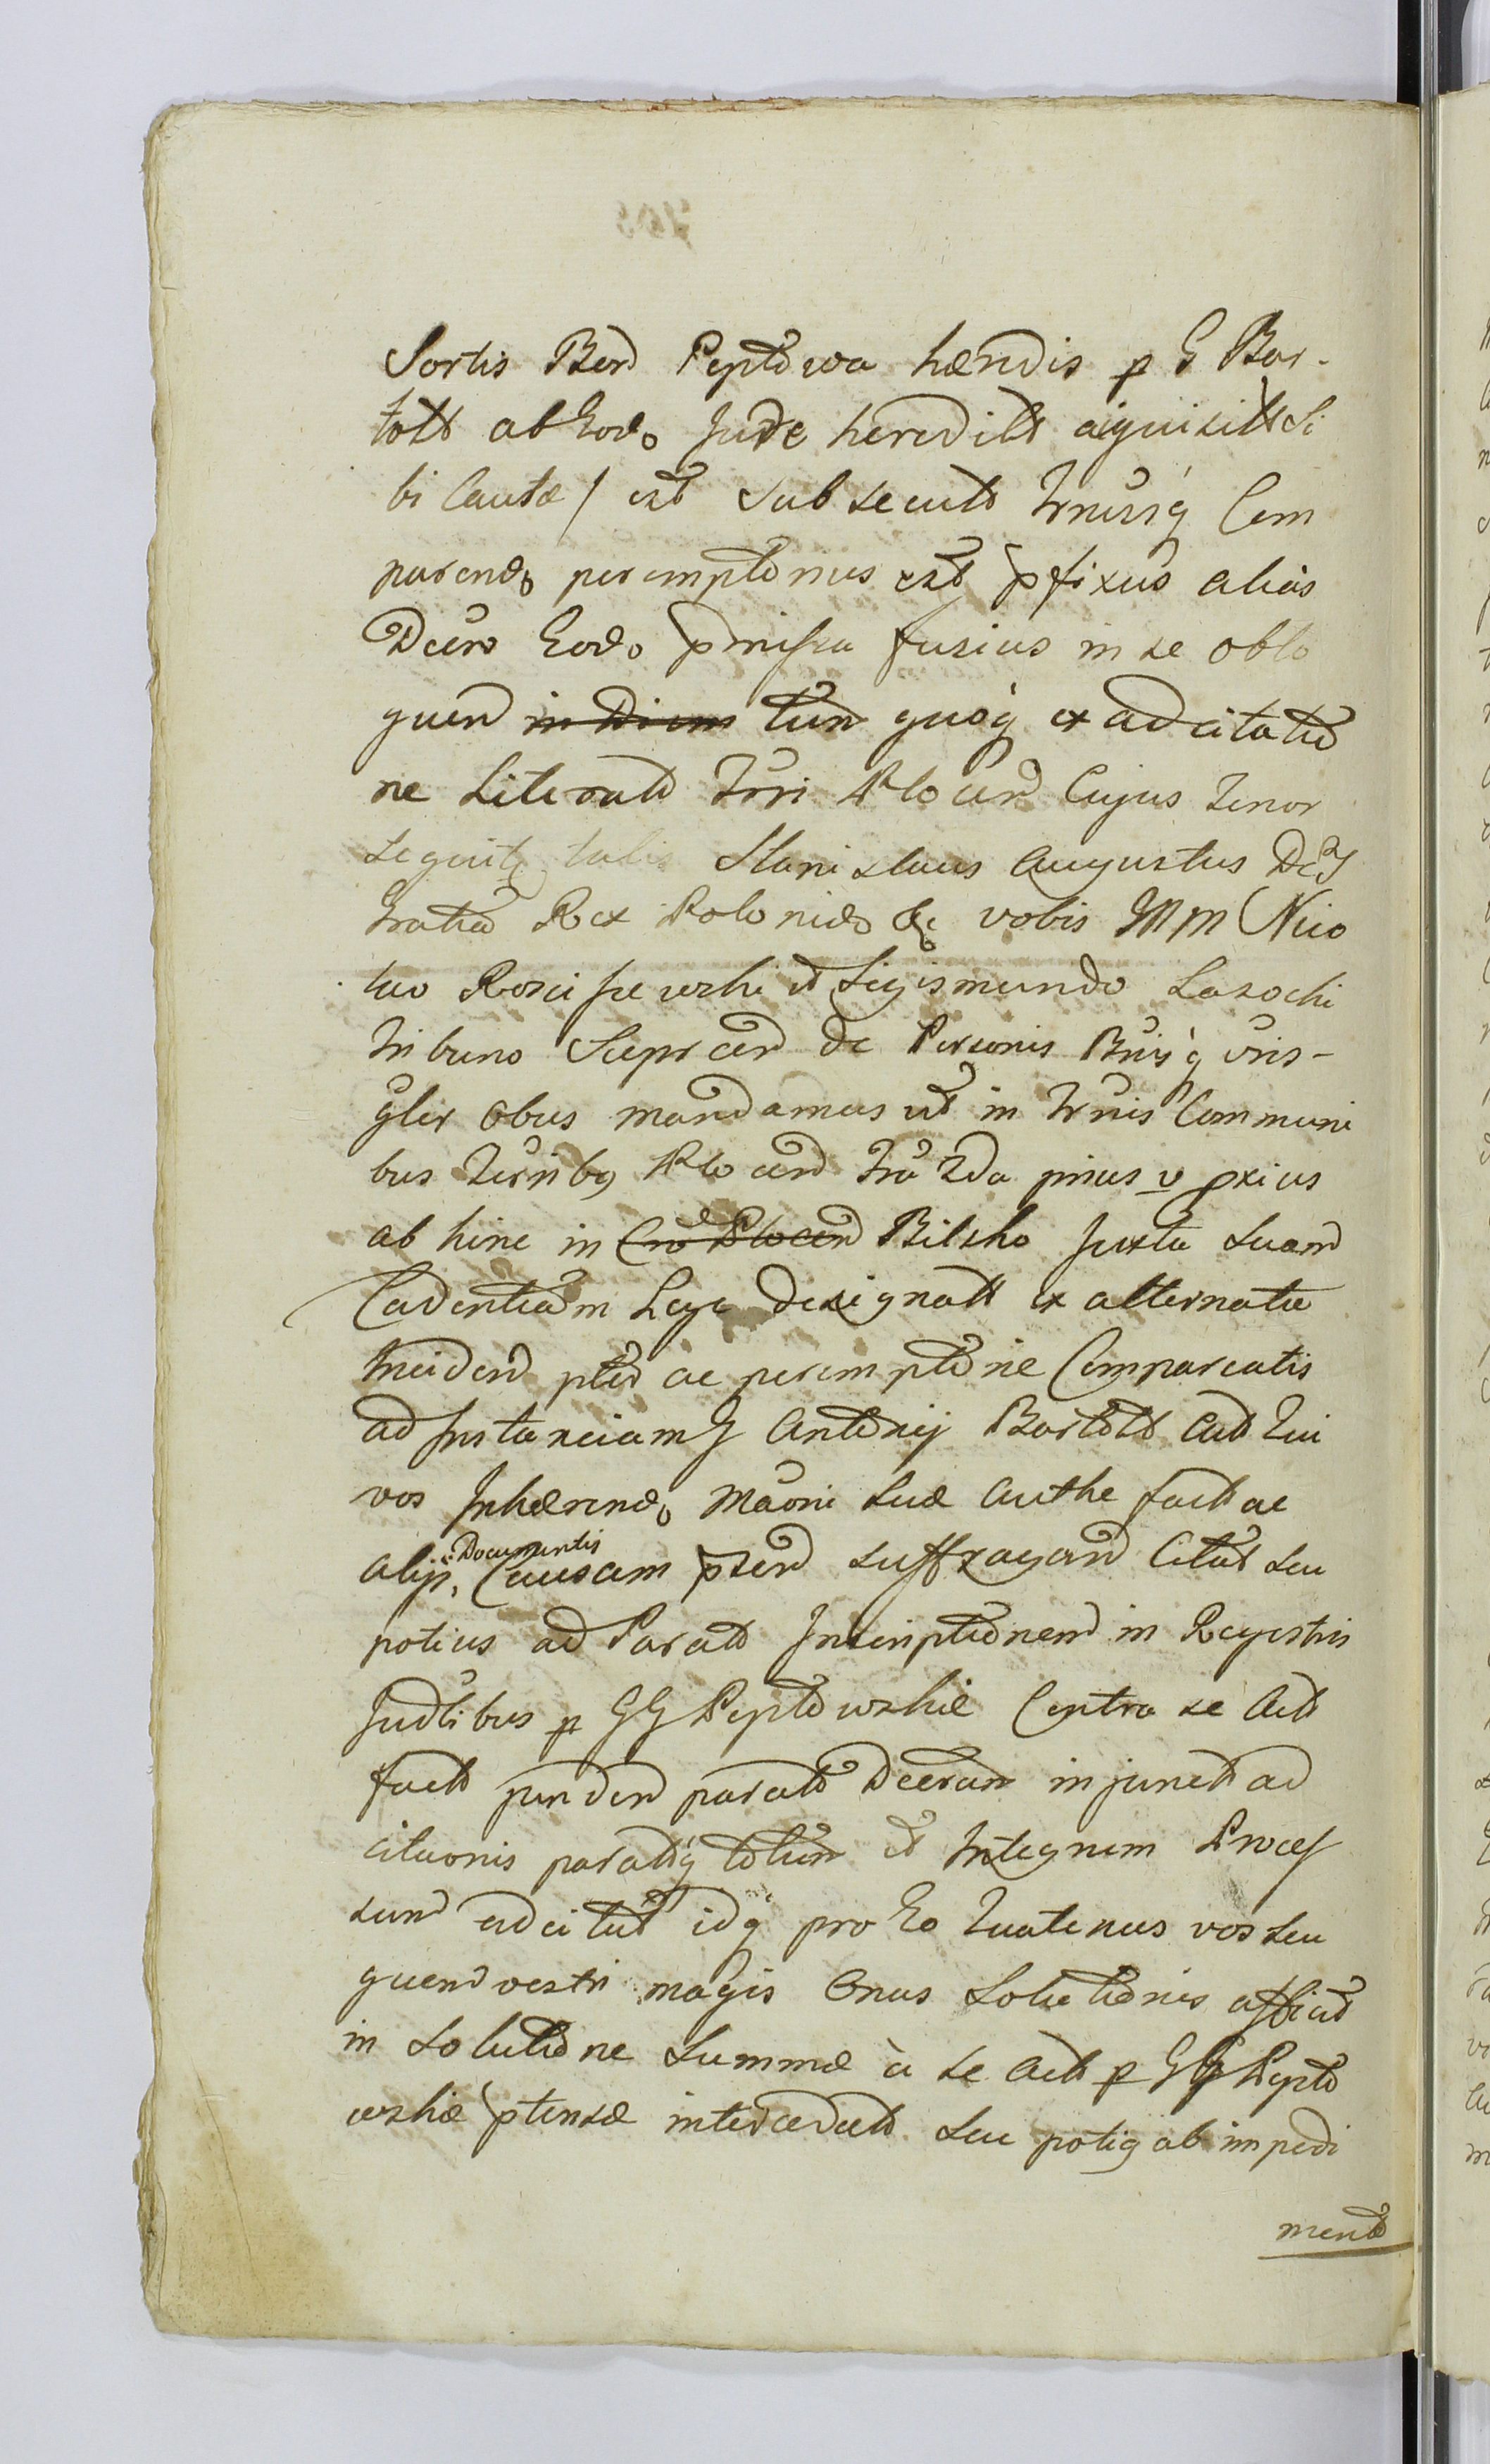 Sortis Bon Peptowa hændis p G Bar-
tolt ab Eodo Jure heredit acquisitt Si
bi Cautæ / est subsecut Trnusq Com
parendo peremptorius est pfixus alias
Decro Eodo pmissa fusius in se oblo
quen in Diem tum quoq ex adcitatio
ne Literatt Trri Plocen Cujus Tenor
sequitq talis Stanislaus Augustus DeJ
Gratia Rex Poloniæ &c vobis MM Nico
lao Kosci et Sigismundo Lasocki
Tribuno de Personis Bnisq vris-
gler Obus mandamus ut in Trnis Communi
bus Terribq Plocen Fra 2da prius v pxius
ab hinc in Cro Plocen Bilsko Juxta Suam
Cadentiam Lege designatt ex alternata
Inciden pter ac peremptorie Compareatis
ad Instanciam G Antonij Bartolt Act Qui
vos Inhærendo Maoni Suæ Authe fact ac
alijs Documentis Causam pten suffragan Citat seu
potius ad Parat Inscriptionem in Regestris
Judlibus p GG Peptowskie Contra se Act
fact parat Decran injunct ad
citaonis paratiq totum et Integrum Proces
sum adcitat idq pro Eo Quatenus vos seu
quem vestri magis Onus Solutionis afficit
in Solutione Summæ à se Act p GG Pepto
wskie ptensæ intercedat seu potiq ab impedi
ment